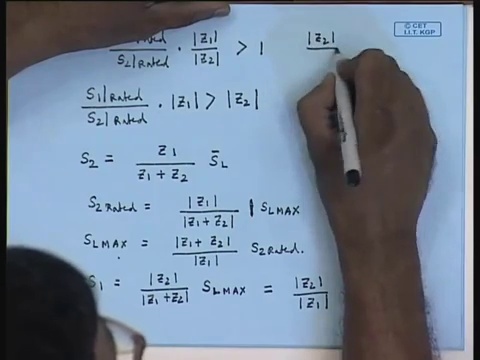 S₁|Rated / S₂|Rated · |Z₁| / |Z₂| > 1    |Z₂|
© CET
I.I.T. KGP
S₁|Rated / S₂|Rated · |Z₁| > |Z₂|
S₂ = Z₁ / (Z₁ + Z₂) S̄L
S₂ Rated = |Z₁| / |Z₁ + Z₂| | SLMAX
SLMAX = |Z₁ + Z₂| / |Z₁| S₂ Rated.
S₁ = |Z₂| / |Z₁ + Z₂| SLMAX = |Z₂| / |Z₁|